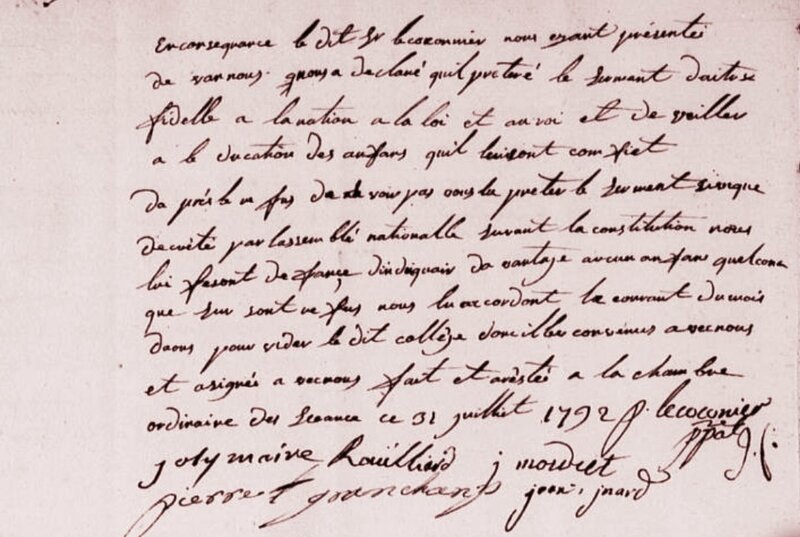 En consequance le dit Sr lecozonnier nous ezant présentés
de van nous qnousa declaré quil preteré le serment daitre
fidelle a lanation a la loi et au roi et de veiller
a le ducation des anfans quil luisont comfiet
da près le re fus de voir pas voulu preter le serment civique
decrété par lassemblé nationalle suivant la constitution nous
lui fesont defance dindiquair da vantage aucun anfans quelcon
que sur sont re fus nous lu accordont le courant dumois
daous pour vider le dit collège donciller convenus avecnous
et asignée a vecnous fait et arèstée a la chambre
ordinaire des Seance ce 31 juillet 1792 p. lecozonier
ppal
joly maire Roüilliard j mordret
pierre granchamp jean